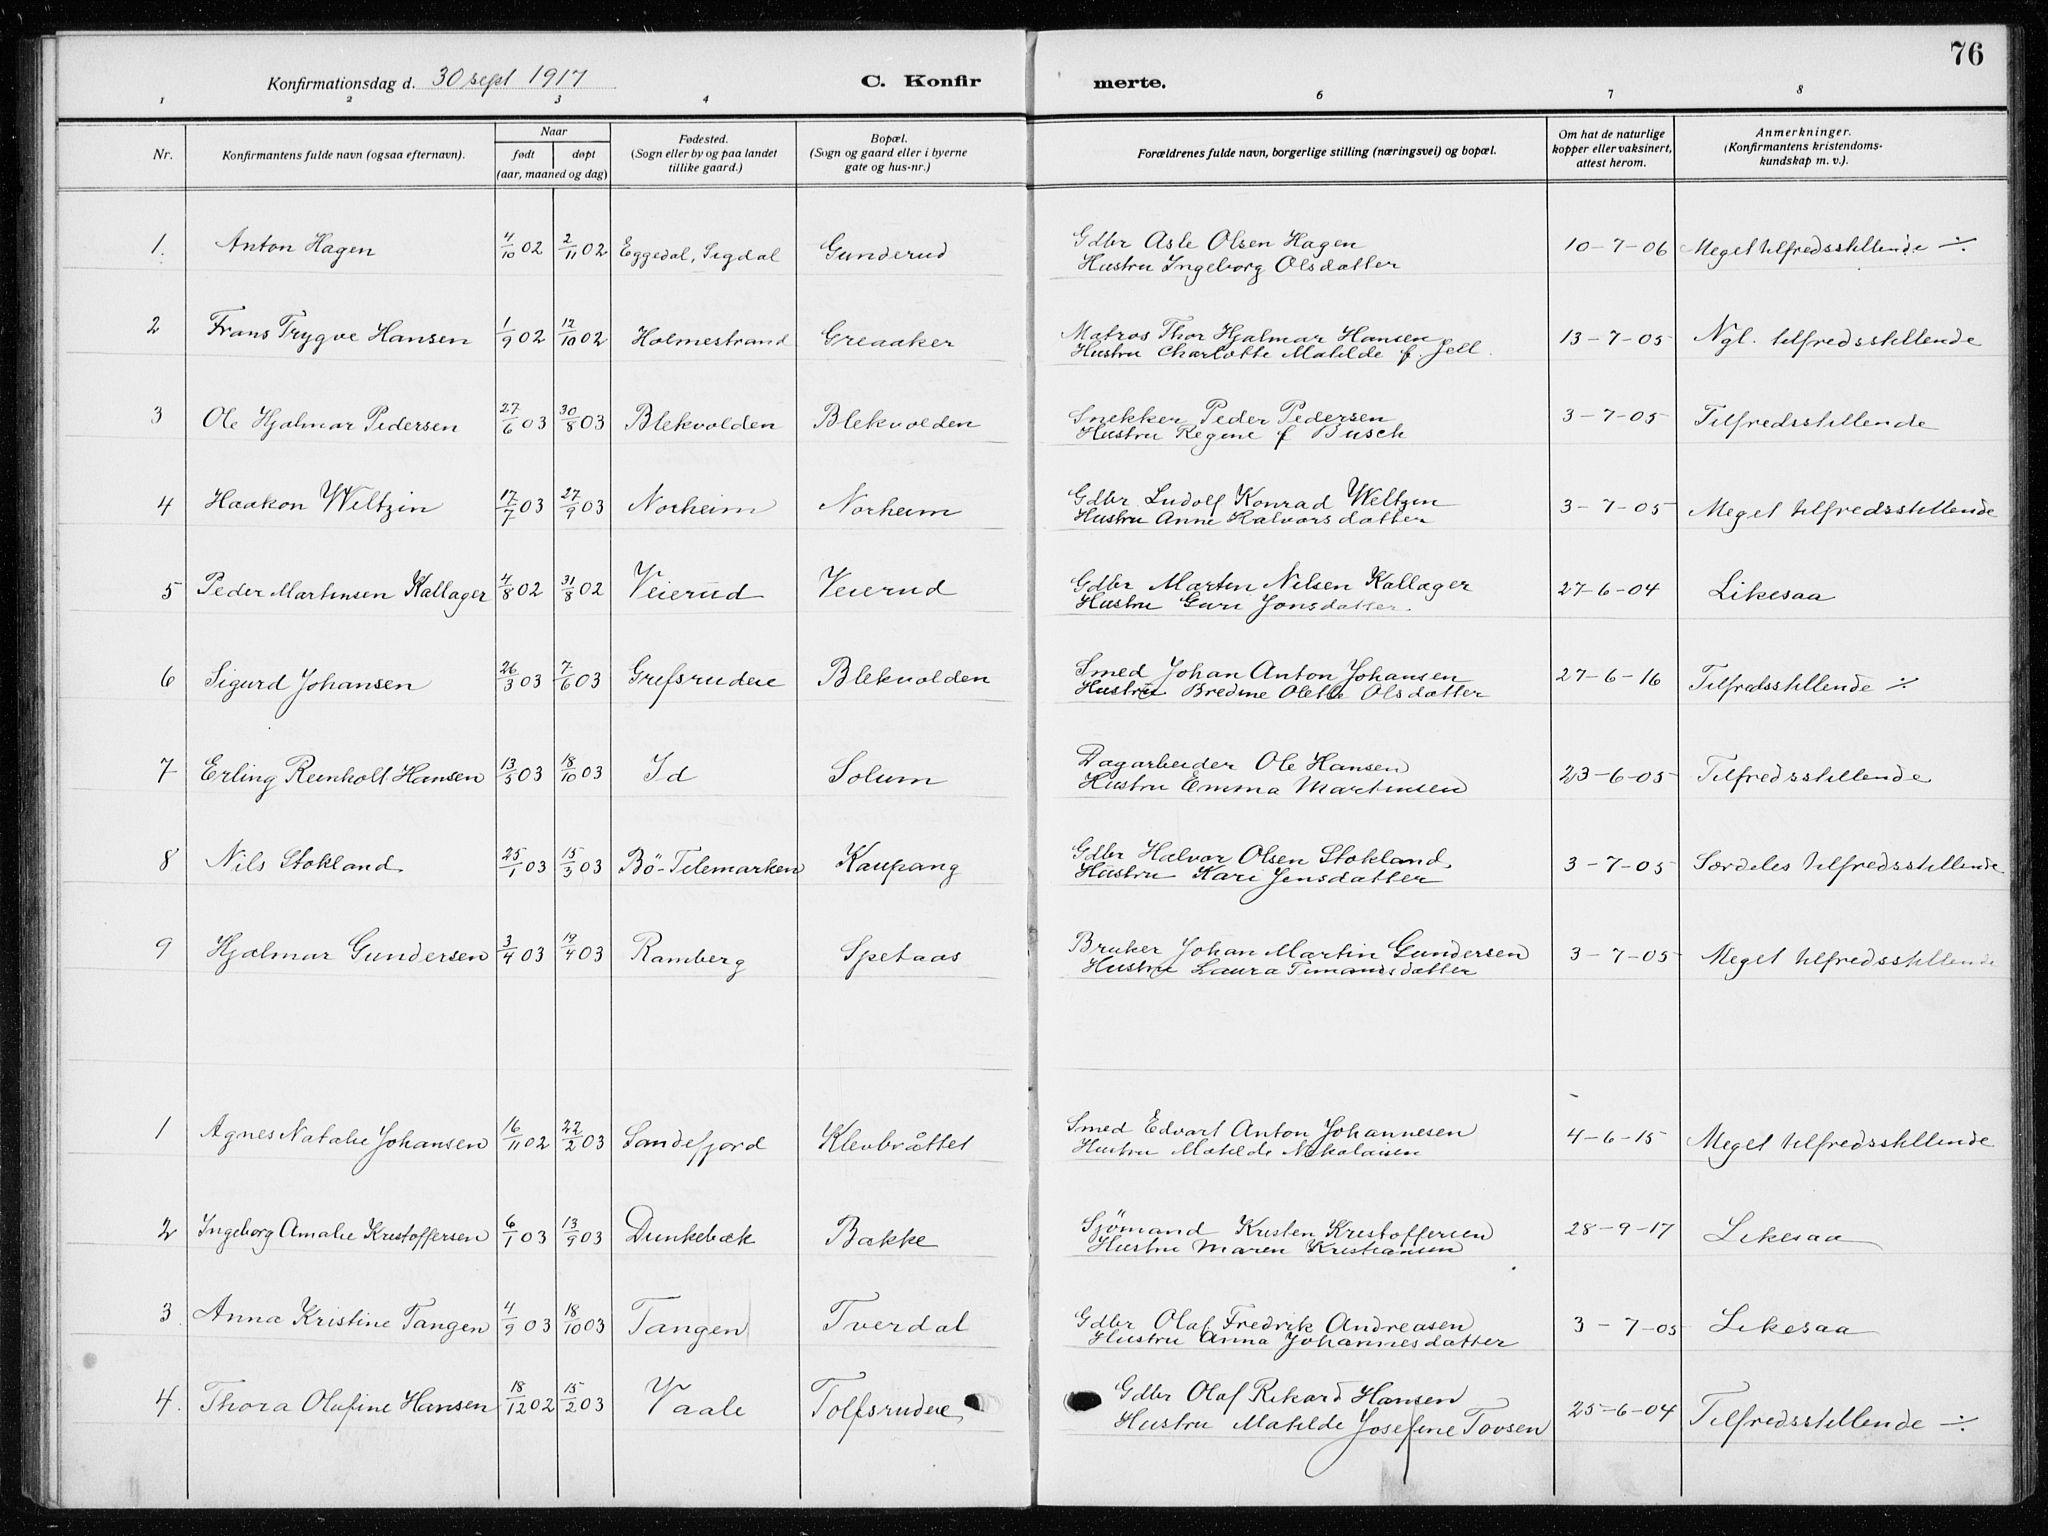 76
Konfirmationsdag d. 30 sept 1917
C. Konfir
merte.
1 2 3 4 6 7 8
Nr.
Konfirmantens fulde navn (ogsaa efternavn).
Naar
født døpt
(aar, maaned og dag)
Fødested.
(Sogn eller by og paa landet
tillike gaard.)
Bopæl.
(Sogn og gaard eller i byerne
gate og hus-nr.)
Forældrenes fulde navn, borgerlige stilling (næringsvei) og bopæl.
Om hat de naturlige
kopper eller vaksinert,
attest herom.
Anmerkninger.
(Konfirmantens kristendoms-
kundskap m. v.).
1. Anton Hagen 4/10 02 2/11 02 Eggedal, Sigdal Gunderud Gdbr Asle Olsen Hagen 10-7-06 Meget tilfredsstillende ÷
Hustru Ingeborg Olsdatter
2 Frans Trygve Hansen 1/9 02 12/10 02 Holmestrand Greaaker Matros Thor Hjalmar Hansen 13-7-05 Ngl. tilfredsstillende
Hustru Charlotte Matilde f. Jell.
3 Ole Hjalmar Pedersen 27/6 03 30/8 03 Blekvolden Blekvolden Snekker Peder Pedersen 3-7-05 Tilfredsstillende
Hustru Regine f Busch
4 Haakon Weltzin 17/7 03 27/9 03 Norheim Norheim Gdbr Ludolf Konrad Weltzin 3-7-05 Meget tilfredsstillende
Hustru Anne Halvorsdatter
5 Peder Martinsen Kallager 4/8 02 31/8 02 Veierud Veierud Gdbr Martin Nilsen Kallager 27-6-04 Likesaa
Hustru Guri Jonsdatter.
6 Sigurd Johansen 26/3 03 7/6 03 Grefsrudeie Blekvolden Smed Johan Anton Johansen 27-6-16 Tilfredsstillende ÷
Hustru Bredine Olette Olsdatter
7 Erling Reinholt Hansen 13/5 03 18/10 03 Id Solum Dagarbeider Ole Hansen 23-6-05 Tilfredsstillende
Hustru Emma Martinsen
8 Nils Stokland 25/1 03 15/3 03 Bö-Telemarken Kaupang Gdbr Halvor Olsen Stokland 3-7-05 Særdeles tilfredsstillende
Hustru Kari Jensdatter
9 Hjalmar Gundersen 3/4 03 19/4 03 Ramberg Spetaas Bruker Johan Martin Gundersen 3-7-05 Meget tilfredsstillende
Hustru Laura Timandsdatter
1 Agnes Natalie Johansen 16/11 02 22/2 03 Sandefjord Klevbråttet Smed Edvart Anton Johannesen 4-6-15 Meget tilfredsstillende
Hustru Matilde Nikolaisen
2 Ingeborg Amalie Kristoffersen 6/1 03 13/9 03 Dunkebæk Bakke Sjömand Kristen Kristoffersen 28-9-17 Likesaa
Hustru Maren Kristiansen
3 Anna Kristine Tangen 4/9 03 18/10 03 Tangen Tverdal Gdbr Olaf Fredrik Andreasen 3-7-05 Likesaa
Hustru Anna Johannesdatter
4. Thora Olufine Hansen 18/12 02 15/2 03 Vaale Tolfsrudeie Gdbr Olaf Rikard Hansen 25-6-04 Tilfredsstillende ÷
Hustru Matilde Josefine Tovsen